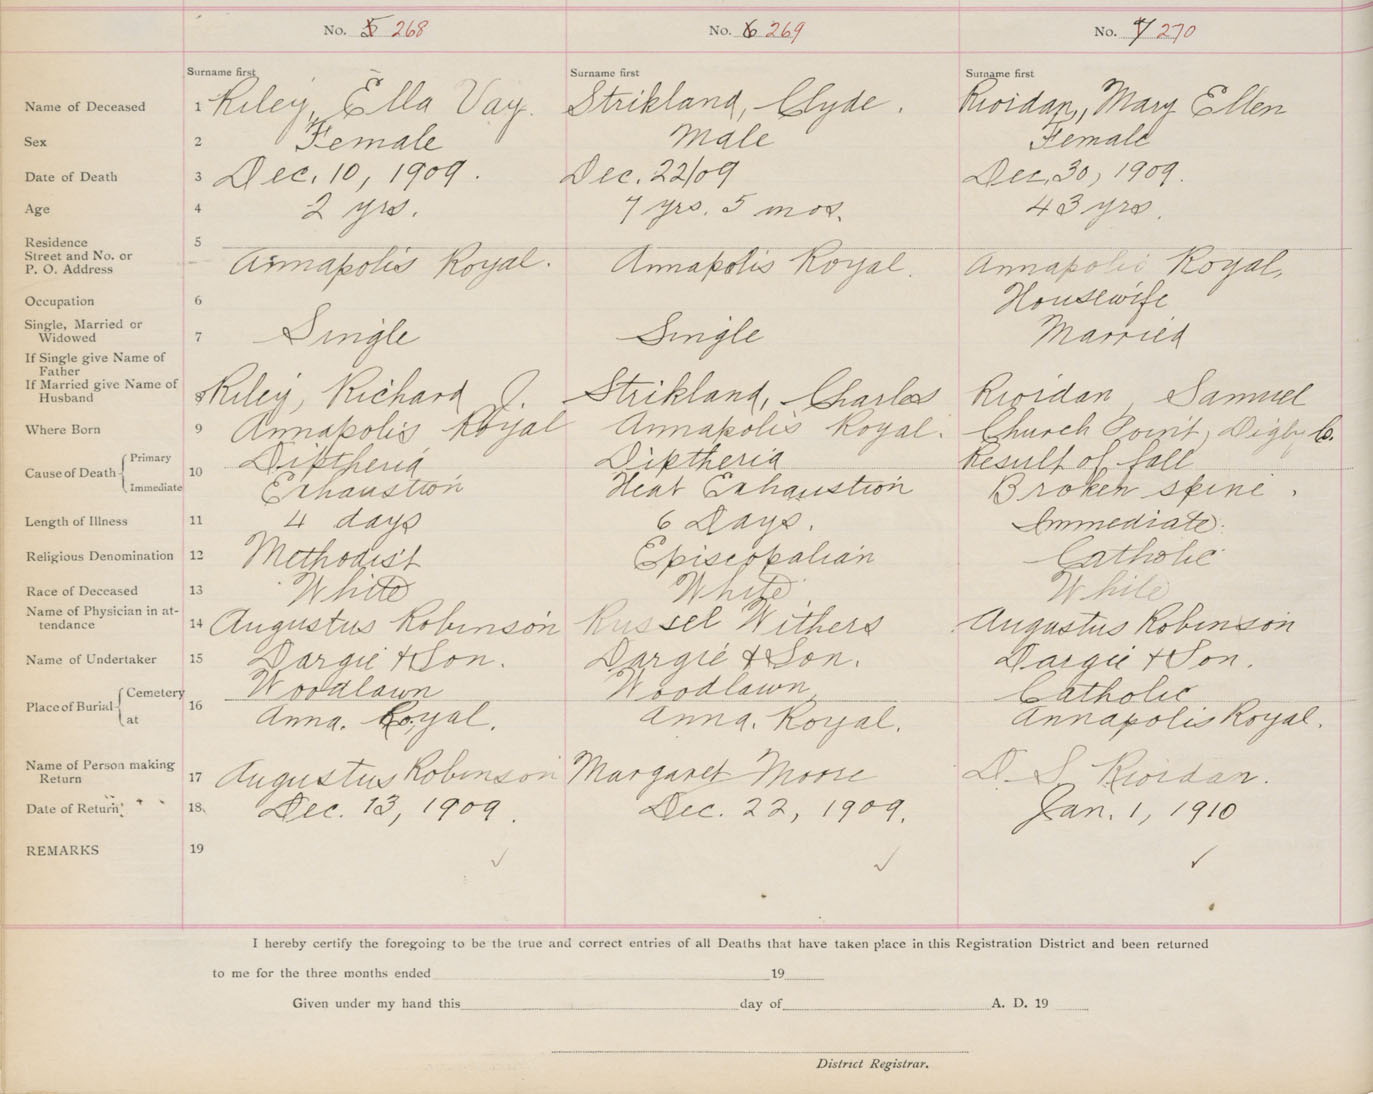 No. 5 268 No. 6 269 No. 7 270
Surname first Surname first Surname first
Name of Deceased 1 Riley, Ella Vay. Strikland, Clyde. Riordan, Mary Ellen
Sex 2 Female Male Female
Date of Death 3 Dec. 10, 1909. Dec. 22/09 Dec. 30, 1909.
Age 4 2 yrs. 7 yrs. 5 mos. 43 yrs.
Residence 5
Street and No. or
P. O. Address Annapolis Royal. Annapolis Royal. Annapolis Royal,
Occupation 6 Housewife
Single, Married or
Widowed 7 Single Single Married
If Single give Name of
Father
If Married give Name of
Husband 8 Riley, Richard J. Strikland, Charles Riordan, Samuel
Where Born 9 Annapolis Royal Annapolis Royal. Church Point, Digby Co.
Cause of Death Primary 10 Diptheria Diptheria Result of fall
Immediate Exhaustion Heat Exhaustion Broken spine.
Length of Illness 11 4 days 6 Days. Immediate.
Religious Denomination 12 Methodist Episcopalian Catholic
Race of Deceased 13 White White White
Name of Physician in at-
tendance 14 Augustus Robinson Russel Withers Augustus Robinson
Name of Undertaker 15 Dargie & Son. Dargie & Son. Dargie & Son.
Place of Burial Cemetery 16 Woodlawn Woodlawn, Catholic
at Anna. Royal. Anna. Royal. Annapolis Royal.
Name of Person making
Return 17 Augustus Robinson Margaret Moore D. S. Riordan.
Date of Return 18. Dec. 13, 1909. Dec. 22, 1909. Jan. 1, 1910
REMARKS 19 ✓ ✓ ✓
I hereby certify the foregoing to be the true and correct entries of all Deaths that have taken place in this Registration District and been returned
to me for the three months ended 19
Given under my hand this day of A. D. 19
District Registrar.